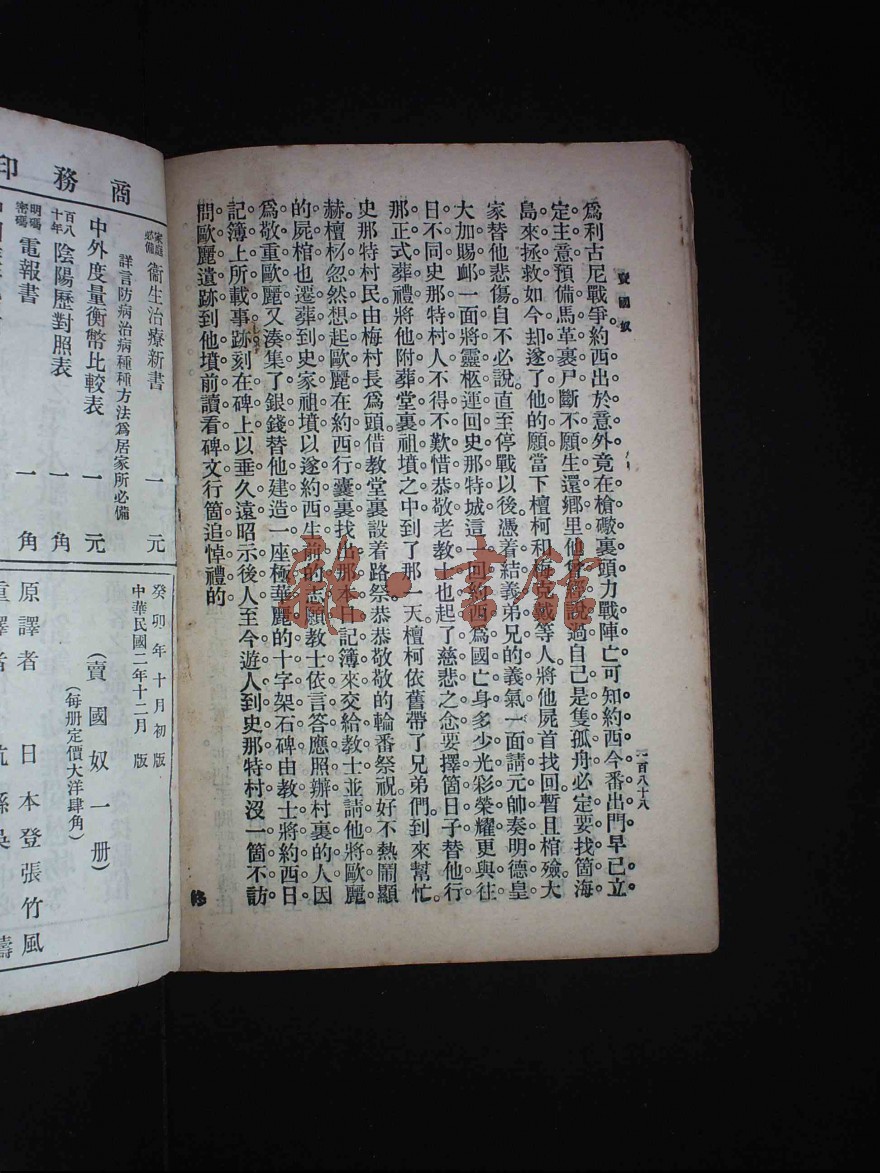 賣國奴
一百八十八
爲利古尼戰爭約西出於意外竟在槍礮裏頭力戰陣亡可知約西今番出門早已立
定主意預備馬革裹尸斷不願生還鄉里他曾經說過自己是隻孤舟必定要找箇海
島來拯救如今却遂了他的願當下檀柯和梅克戴等人將他屍首找回暫且棺殮大
家替他悲傷自不必說直至停戰以後憑着結義弟兄的義氣一面請元帥奏明德皇
大加賜卹一面將靈柩運回史那特城這一回約西爲國亡身多少光彩榮耀更與往
日不同史那特村人不得不歎惜恭敬老教士也起了慈悲之念要擇箇日子替他行
那正式葬禮將他附葬堂裏祖墳之中到了那一天檀柯依舊帶了兄弟們到來幫忙
史那特村民由梅村長爲頭借教堂裏設着路祭恭恭敬敬的輪番祭祝好不熱鬧顯
赫檀柯忽然想起歐麗在約西行囊裏找出那本日記簿來交給教士並請他將歐麗
的屍棺也遷葬到史家祖墳以遂約西生前的志願教士依言答應照辦村裏的人因
爲敬重歐麗又湊集了銀錢替他建造一座極華麗的十字架石碑由教士將約西日
記簿上所載事跡刻在碑上以垂久遠昭示後人至今遊人到史那特村沒一箇不訪
問歐麗遺跡到他墳前讀看碑文行箇追悼禮的
終
商務印
家庭必備 衞生治療新書 一元
詳言防病治病種種方法爲居家所必備
中外度量衡幣比較表 一元
百八十年 陰陽歷對照表 一角
明碼密碼 電報書 一角
癸卯年十月初版
中華民國二年十二月 版
(賣國奴一册)
(每册定價大洋肆角)
原譯者 日本登張竹風
重譯者
雜·書館